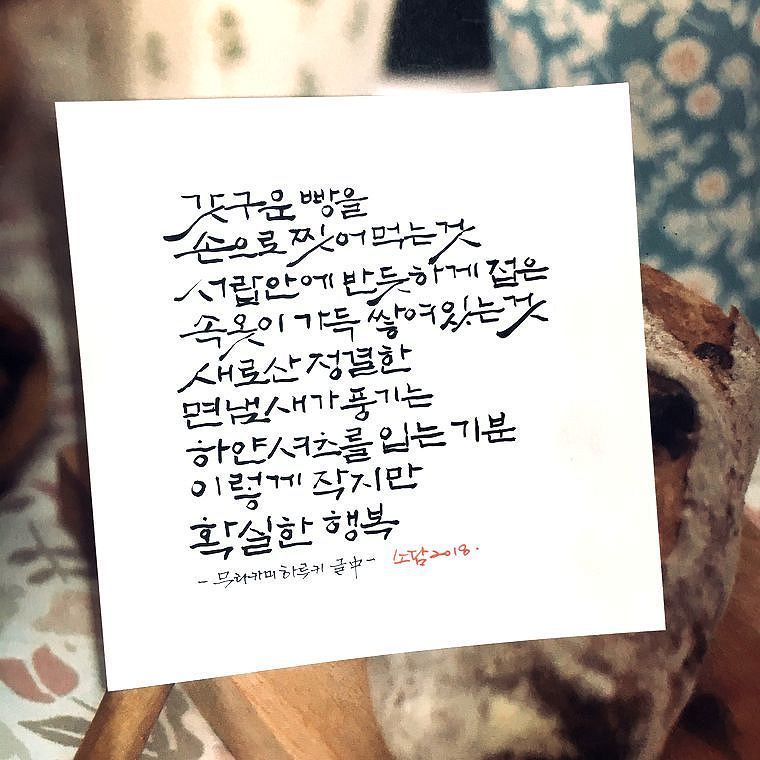 갓구운 빵을
손으로 찢어 먹는것
서랍안에 반듯하게 접은
속옷이 가득 쌓여있는것
새로산 정결한
면냄새가 풍기는
하얀셔츠를 입는 기분
이렇게 작지만
확실한 행복
- 무라카미하루키 글中 - 노담2018.